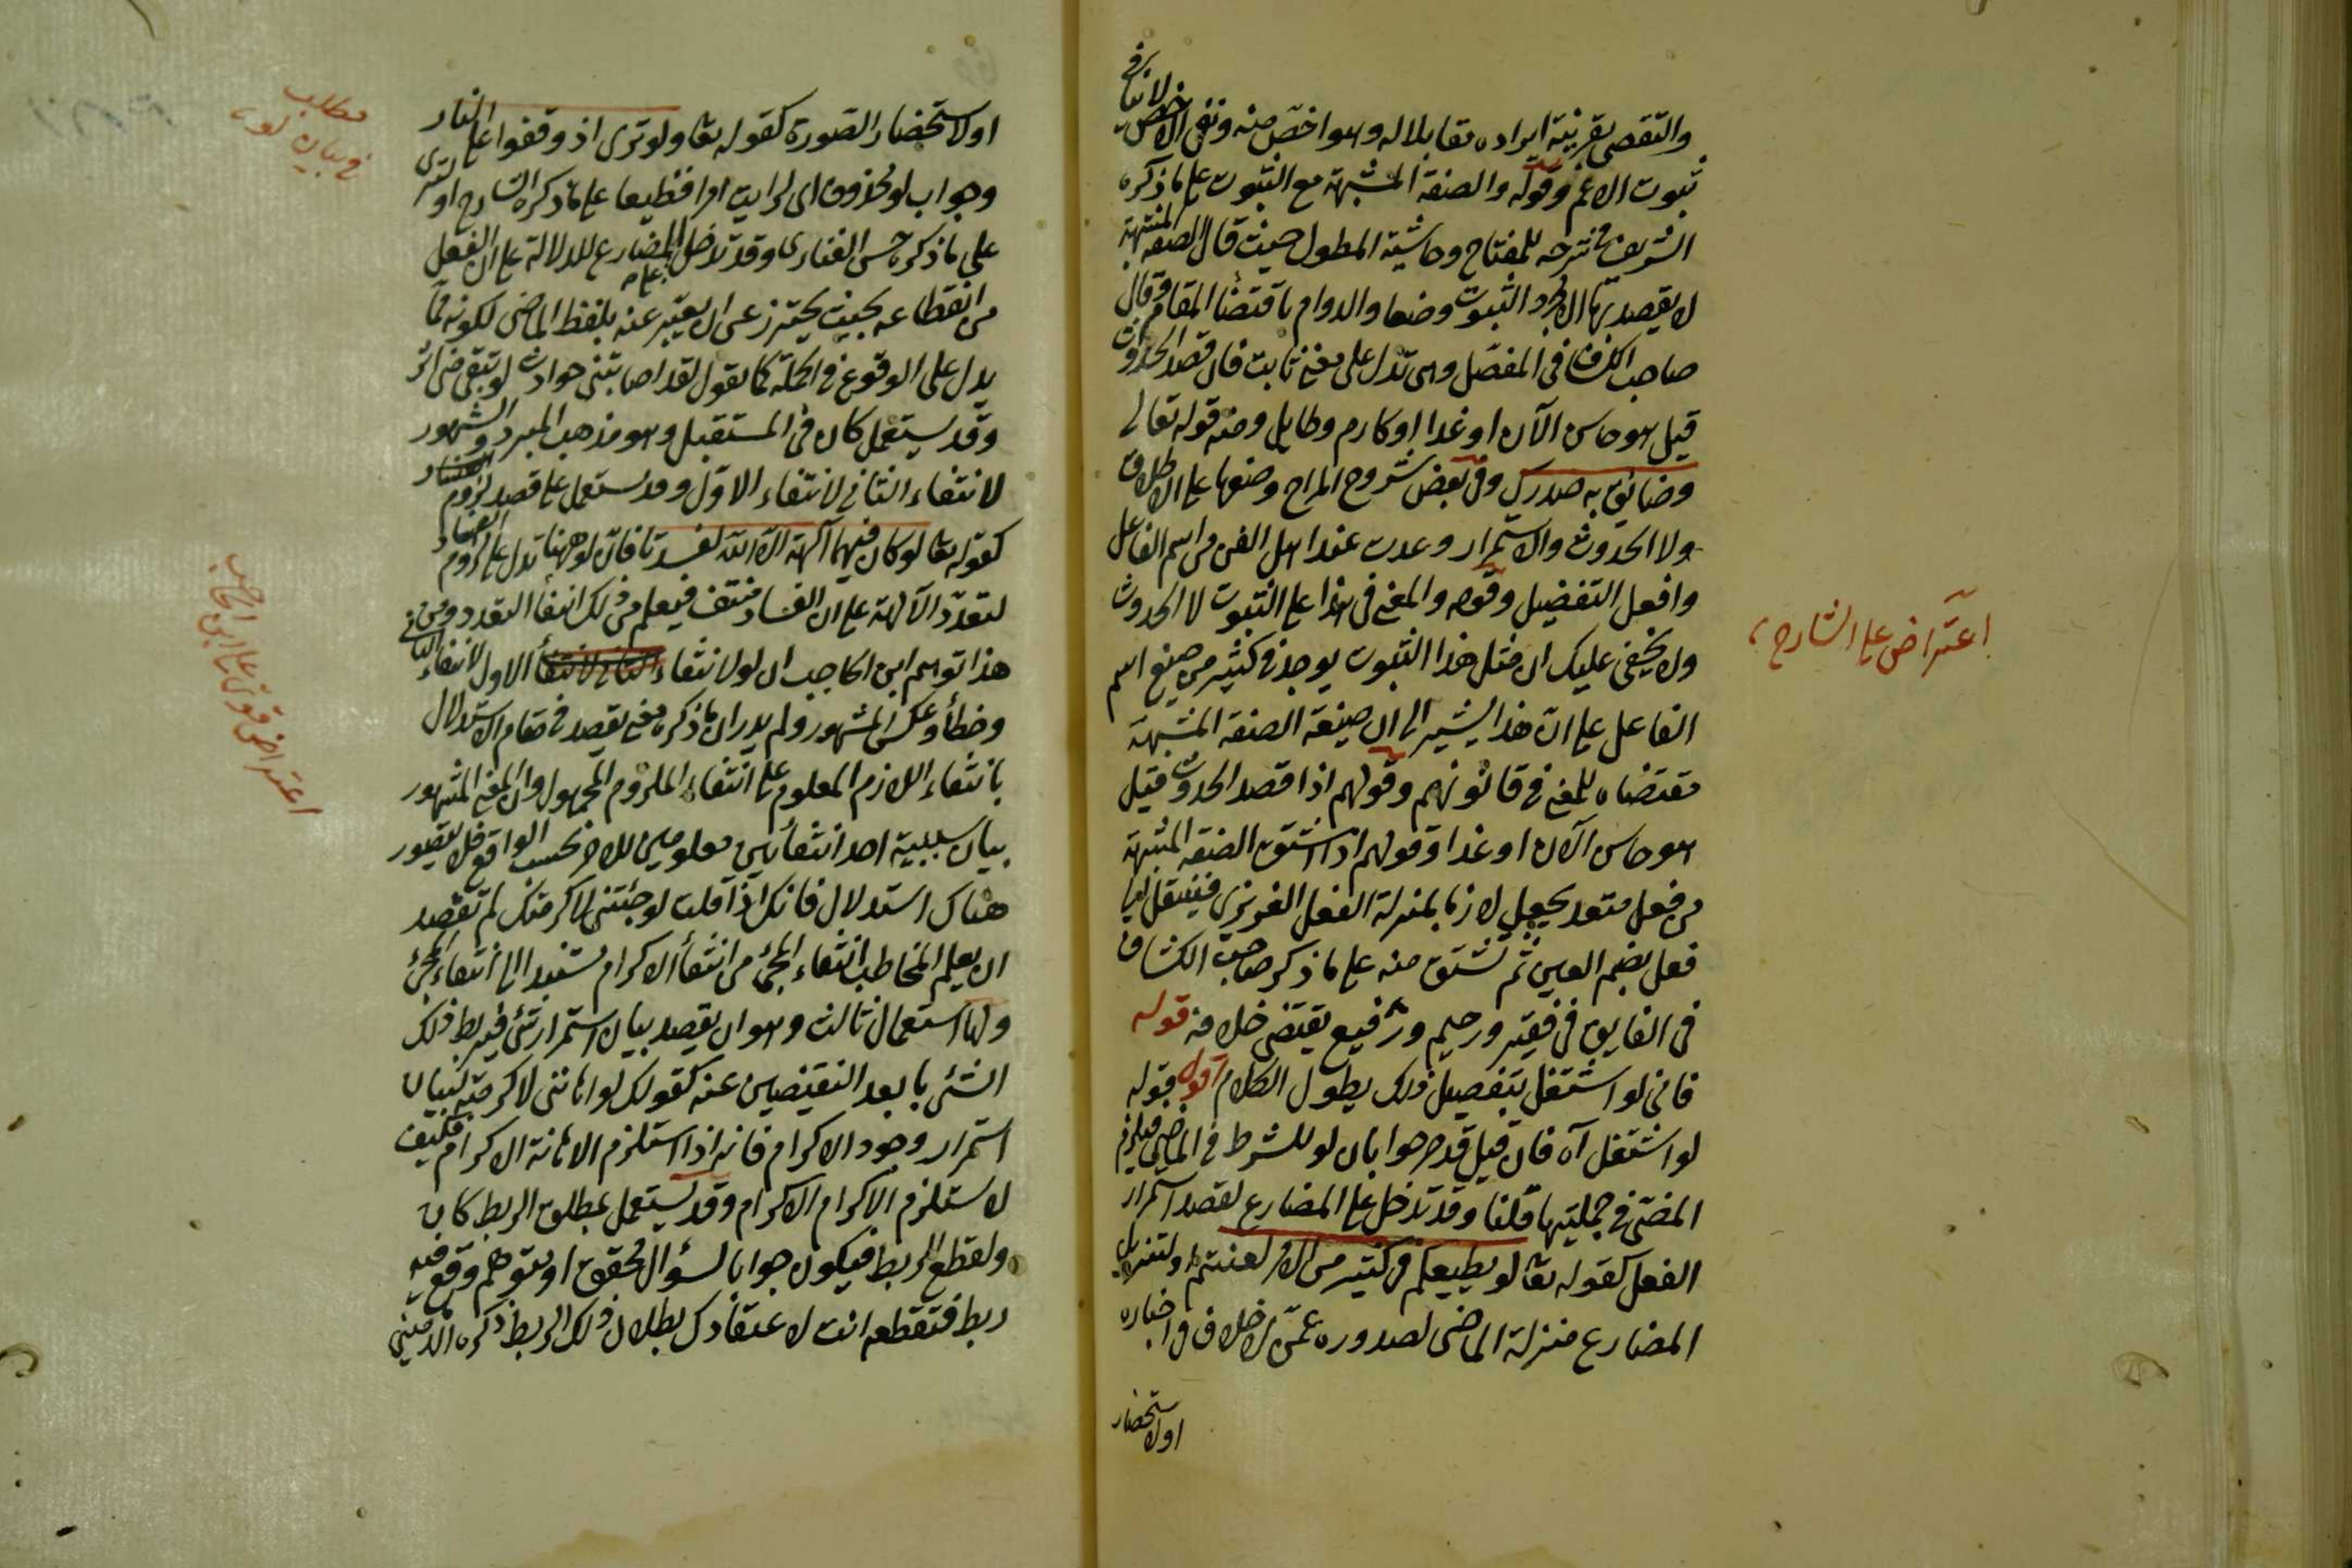 والتقصي بقرينة ايراده مقابلا له وهو اخص منه ونفي الاخص لا ينافي
ثبوت الاعم وقوله والصفة المشبهة مع الثبوت على ما ذكره
الشريف في شرحه للمفتاح وحاشية المطول حيث قال الصفة المشبهة
لا يقصد بها الا مجرد الثبوت وضعا والدوام باقتضاء المقام وقال
صاحب الكشاف في المفصل وهي تدل على معنى ثابت فان قصد الحدوث
قيل هو حاسن الآن او غدا او كارم وطايل ومنه قوله تعالى
وضائق به صدرك وفي بعض شروح المراح وضعها على الاطلاق
ولا الحدوث والاستمرار وعدت عند اهل الفن من اسم الفاعل
وافعل التفضيل وقوله والمعنى في هذا على الثبوت لا الحدوث
ولا يخفى عليك ان مثل هذا الثبوت يوجد في كثير من صيغ اسم
الفاعل على ان هذا يشير الى ان صيغة الصفة المشبهة
مقتضاه للمعنى في قانونهم وقولهم اذا قصد الحدوث قيل
هو حاسن الآن او غدا وقولهم اذا اشتق الصفة المشبهة
من فعل متعد يجعل لازما بمنزلة الفعل الغريزي فينتقل الى
فعل بضم العين ثم تشتق منه على ما ذكر صاحب الكشاف
في الفايق في فقير ورحيم ورفيع يقتضي خلافه قوله
فاني لو اشتغل بتفصيل ذلك يطول الكلام اقول قوله
لو اشتغل آه فان قيل قد صرحوا بان لو للشرط في الماضي فيلزم
المضي في جملتيها قلنا وقد تدخل على المضارع لقصد استمرار
الفعل كقوله تعا لو يطيعكم في كثير من الامر لعنتم ولتنزيل
المضارع منزلة الماضي لصدوره عمن لا خلاف في اخباره
اولاستحضار
اعتراض على الشارح
اولاستحضار الصورة كقوله تعا ولو ترى اذ وقفوا على النار
وجواب لو محذوف اى لرايت امرا فظيعا على ما ذكره الشارح او
على ما ذكره حسن الفنارى وقد تدخل المضارع للدلالة على ان الفعل
من انقطاعه بحيث يحترز عن ان يعبر عنه بلفظ الماضي لكونه مما
يدل على الوقوع في الجملة كما تقول لقد اصابتني حوادث لو تبقى
وقد يستعمل كان في المستقبل وهو مذهب المبرد والمشهور
لانتفاء الثاني لانتفاء الاول وقد يستعمل على قصد لزوم
كقوله تعا لو كان فيهما آلهة الا الله لفسدتا فان لو ههنا تدل على لزوم الفساد
لتعدد الآلهة على ان الفساد منتف فيعلم من ذلك انتفاء التعدد ومن
هذا توهم ابن الحاجب ان لو لانتفاء الاول لانتفاء الثاني
وخطأ وعكس المشهور ولم يدر ان ما ذكره معنى يقصد في مقام الاستدلال
بانتفاء اللازم المعلوم على انتفاء الملزوم المجهول وان المعنى المشهور
بيان سببية احد انتفائين معلومين للاخر بحسب الواقع فلا يتصور
هناك استدلال فانك اذا قلت لو جئتني لاكرمتك لم تقصد
ان يعلم المخاطب انتفاء المجئ من انتفاء الاكرام
ولها استعمال ثالث وهو ان يقصد بيان استمرار شئ فيربط ذلك
الشئ بابعد النقيضين عنه كقولك لو اهانني لاكرمته لبيان
استمرار وجود الاكرام فانه اذا استلزم الاهانة الاكرام فكيف
لا ستلزم الاكرام الاكرام وقد يستعمل لمطلق الربط كان
ولقطع الربط فيكون جوابا لسؤال محقق او متوهم وقع فيه
ربط فتقطعه انت لاعتقادك بطلان ذلك الربط ذكره الدمامينى
مطلب
في بيان لو
اعتراض قوى على ابن الحاجب